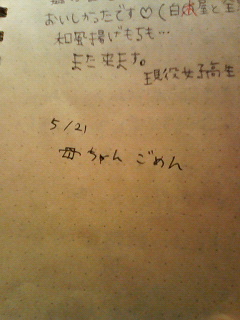 おいしかったです♡(白
和風揚げもち…
また来ます。
現役女子高生
5/21
母ちゃん ごめん